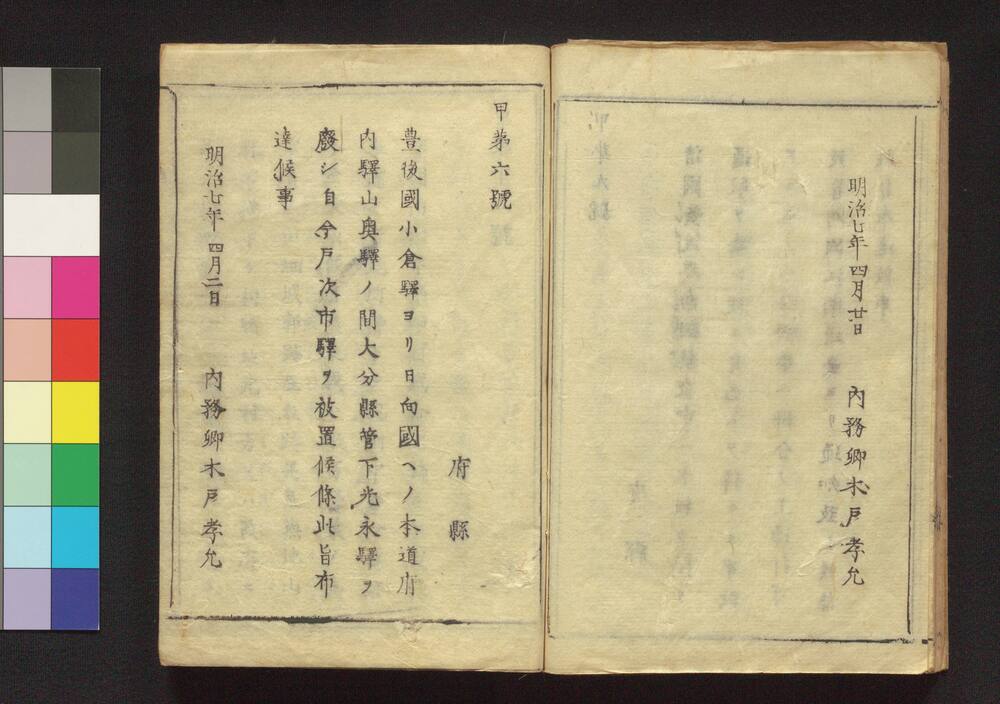 明治七年四月廿日　内務卿木戸孝允
甲第六號
府縣
豊後國小倉驛ヨリ日向國ヘノ本道府
内驛山奥驛ノ間大分縣管下光永驛ヲ
廢シ自今戸次市驛ヲ被置候條此旨布
達候事
明治七年四月二日　内務卿木戸孝允